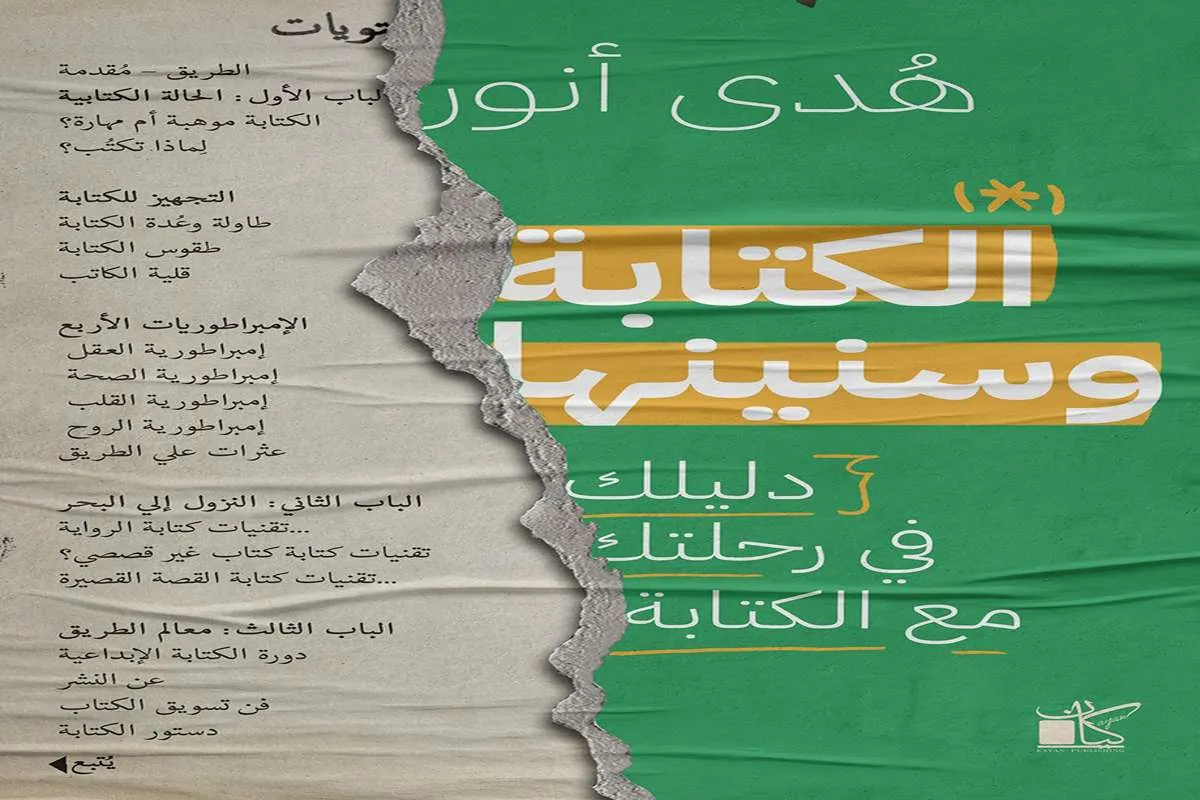 هُدى أنور
(*)
الكتابة
وسنينها
دليلك
في رحلتك
مع الكتابة
كيان
Kayan
KAYAN PUBLISHING
تويات
الطريق – مُقدمة
لباب الأول: الحالة الكتابية
الكتابة موهبة أم مهارة؟
لِماذا تكتُب؟
التجهيز للكتابة
طاولة وعُدة الكتابة
طقوس الكتابة
قلية الكاتب
الإمبراطوريات الأربع
إمبراطورية العقل
إمبراطورية الصحة
إمبراطورية القلب
إمبراطورية الروح
عثرات علي الطريق
الباب الثاني: النزول إلي البحر
تقنيات كتابة الرواية...
تقنيات كتابة كتاب غير قصصي؟
تقنيات كتابة القصة القصيرة...
الباب الثالث: معالم الطريق
دورة الكتابة الإبداعية
عن النشر
فن تسويق الكتاب
دستور الكتابة
يُتبع